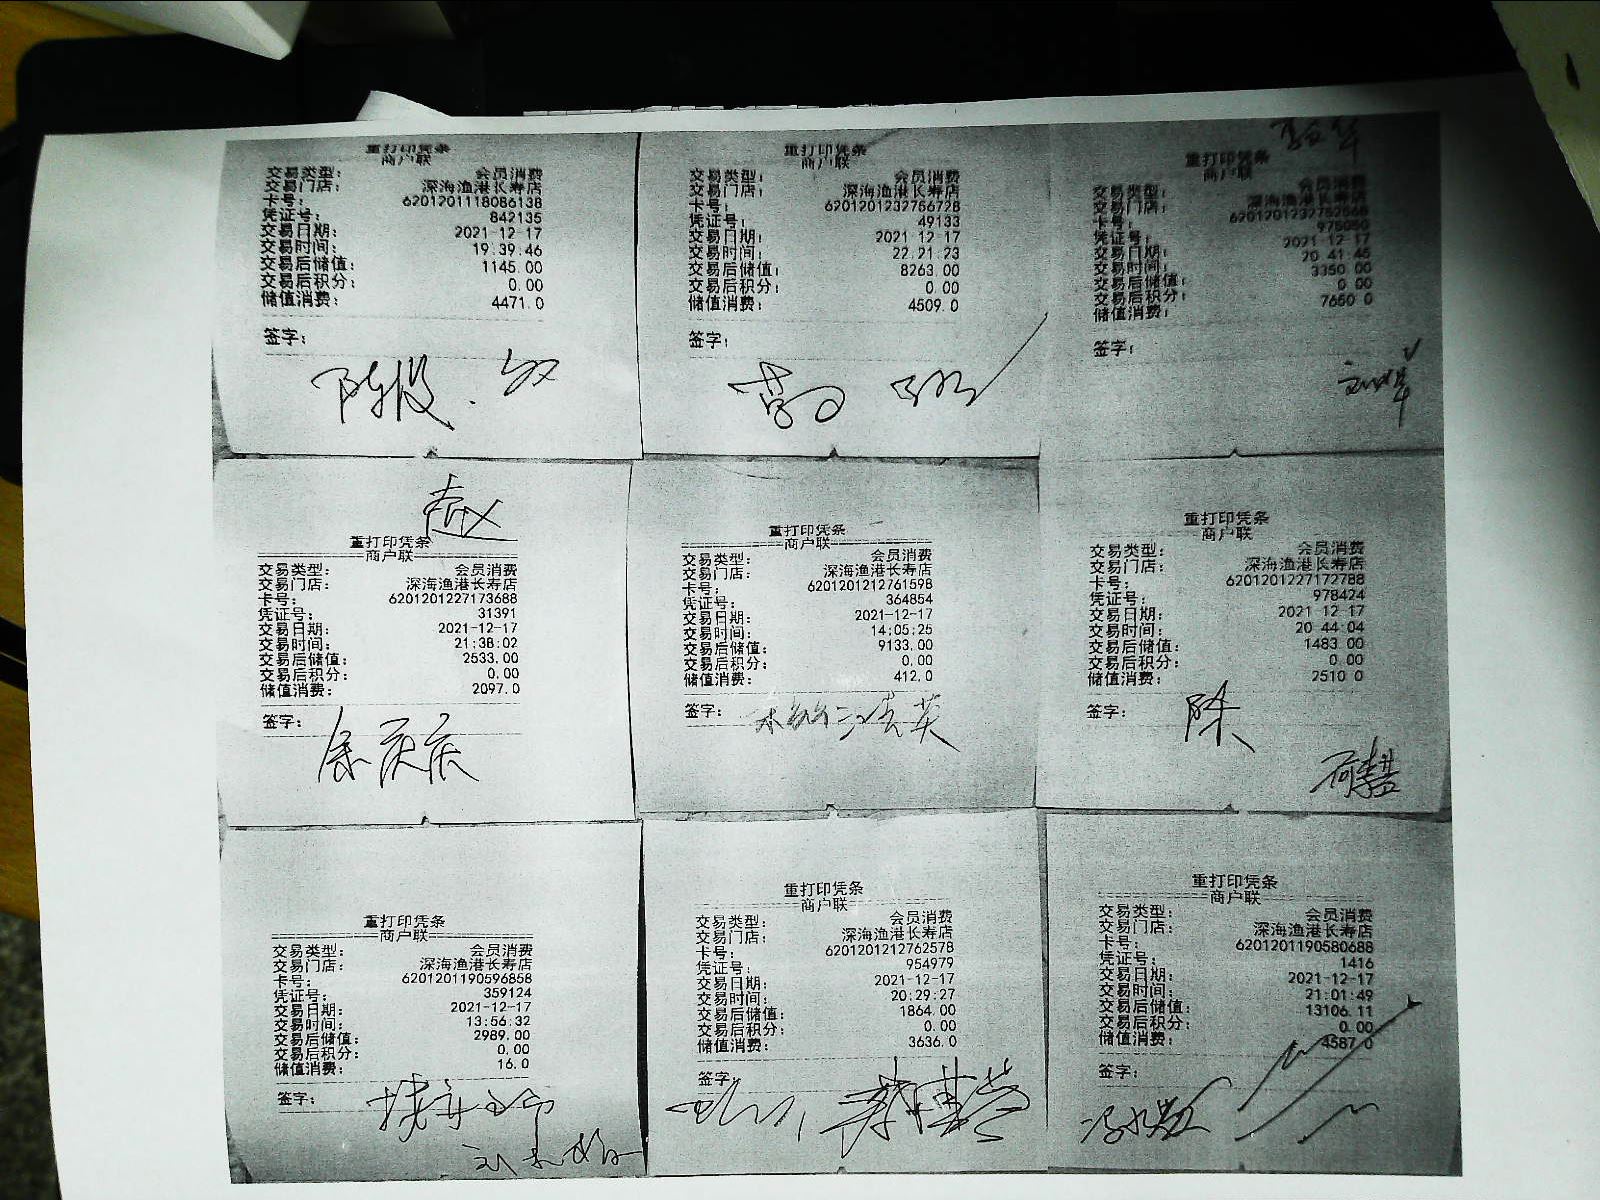 重打印凭条
商户联
交易类型： 会员消费
交易门店： 深海渔港长寿店
卡号： 6201201118086138
凭证号： 842135
交易日期： 2021-12-17
交易时间： 19.39.46
交易后储值： 1145.00
交易后积分： 0.00
储值消费： 4471.0
签字：
重打印凭条
商户联
交易类型： 会员消费
交易门店： 深海渔港长寿店
卡号： 6201201232756728
凭证号： 49133
交易日期： 2021 12 17
交易时间： 22.21.23
交易后储值： 8263.00
交易后积分： 0.00
储值消费： 4509.0
签字：
重打印凭条
商户联
交易类型： 会员消费
交易门店： 深海渔港长寿店
卡号：
凭证号：
交易日期： 2021 12 17
交易时间： 20 41 45
交易后储值： 3350 00
交易后积分： 0 00
储值消费： 7650 0
签字：
赵
重打印凭条
商户联
交易类型： 会员消费
交易门店： 深海渔港长寿店
卡号： 6201201227173688
凭证号： 31391
交易日期： 2021-12-17
交易时间： 21:38:02
交易后储值： 2533.00
交易后积分： 0.00
储值消费： 2097.0
签字：
重打印凭条
商户联
交易类型： 会员消费
交易门店： 深海渔港长寿店
卡号： 6201201212761598
凭证号： 364854
交易日期： 2021-12-17
交易时间： 14:05:25
交易后储值： 9133.00
交易后积分： 0.00
储值消费： 412.0
签字：
重打印凭条
商户联
交易类型： 会员消费
交易门店： 深海渔港长寿店
卡号： 6201201227172788
凭证号： 978424
交易日期： 2021 12 17
交易时间： 20 44 04
交易后储值： 1483 00
交易后积分： 0 00
储值消费： 2510 0
签字： 陈
重打印凭条
商户联
交易类型： 会员消费
交易门店： 深海渔港长寿店
卡号： 6201201190596858
凭证号： 359124
交易日期： 2021-12-17
交易时间： 13:56:32
交易后储值： 2989.00
交易后积分： 0.00
储值消费： 16.0
签字：
重打印凭条
商户联
交易类型： 会员消费
交易门店： 深海渔港长寿店
卡号： 6201201212762578
凭证号： 954979
交易日期： 2021-12-17
交易时间： 20:29:27
交易后储值： 1864.00
交易后积分： 0.00
储值消费： 3636.0
签字：
重打印凭条
商户联
交易类型： 会员消费
交易门店： 深海渔港长寿店
卡号： 6201201190580688
凭证号： 1416
交易日期： 2021-12-17
交易时间： 21:01:49
交易后储值： 13106.11
交易后积分： 0.00
储值消费： 4587.0
签字：